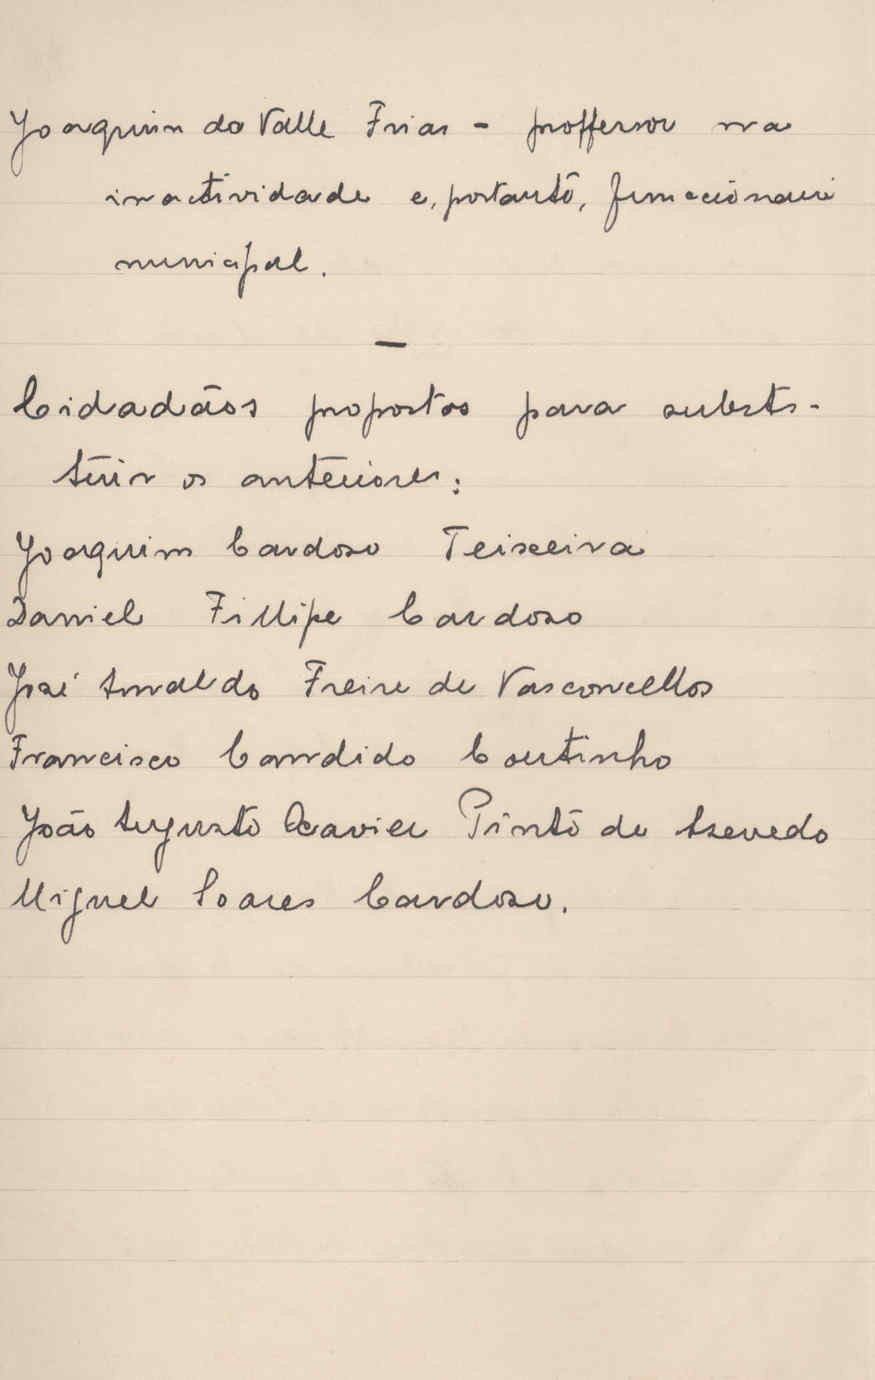 Joaquim do Valle Frias - proffersor na
inactividade e, portanto, funccionario
municipal.
—
Cidadãos propostos para substi-
tuir os anteriores:
Joaquim Cardoso Teixeira
Daniel Fillipe Cardoso
José Arnaldo Freire de Vasconcellos
Francisco Candido Coutinho
João Augusto Xavier Pinto de Azevedo
Miguel Soares Cardoso.